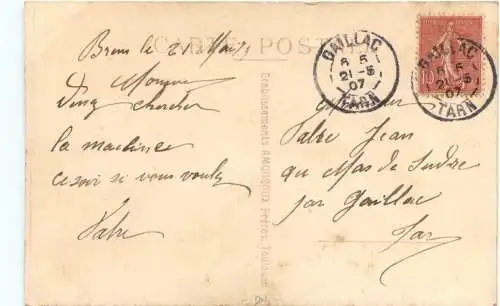 CARTE POSTALE
Brens le 21 Mai 07
Monsieur
chercher
la machine
ce soir si vous voulez
Fabre
Etablissements Frères, Toulouse
GAILLAC
6 5
21 - 5
07
TARN
GAILLAC
6 5
21 - 5
07
TARN
10
Monsieur
Fabre Jean
au Mas de
par Gaillac
Tarn